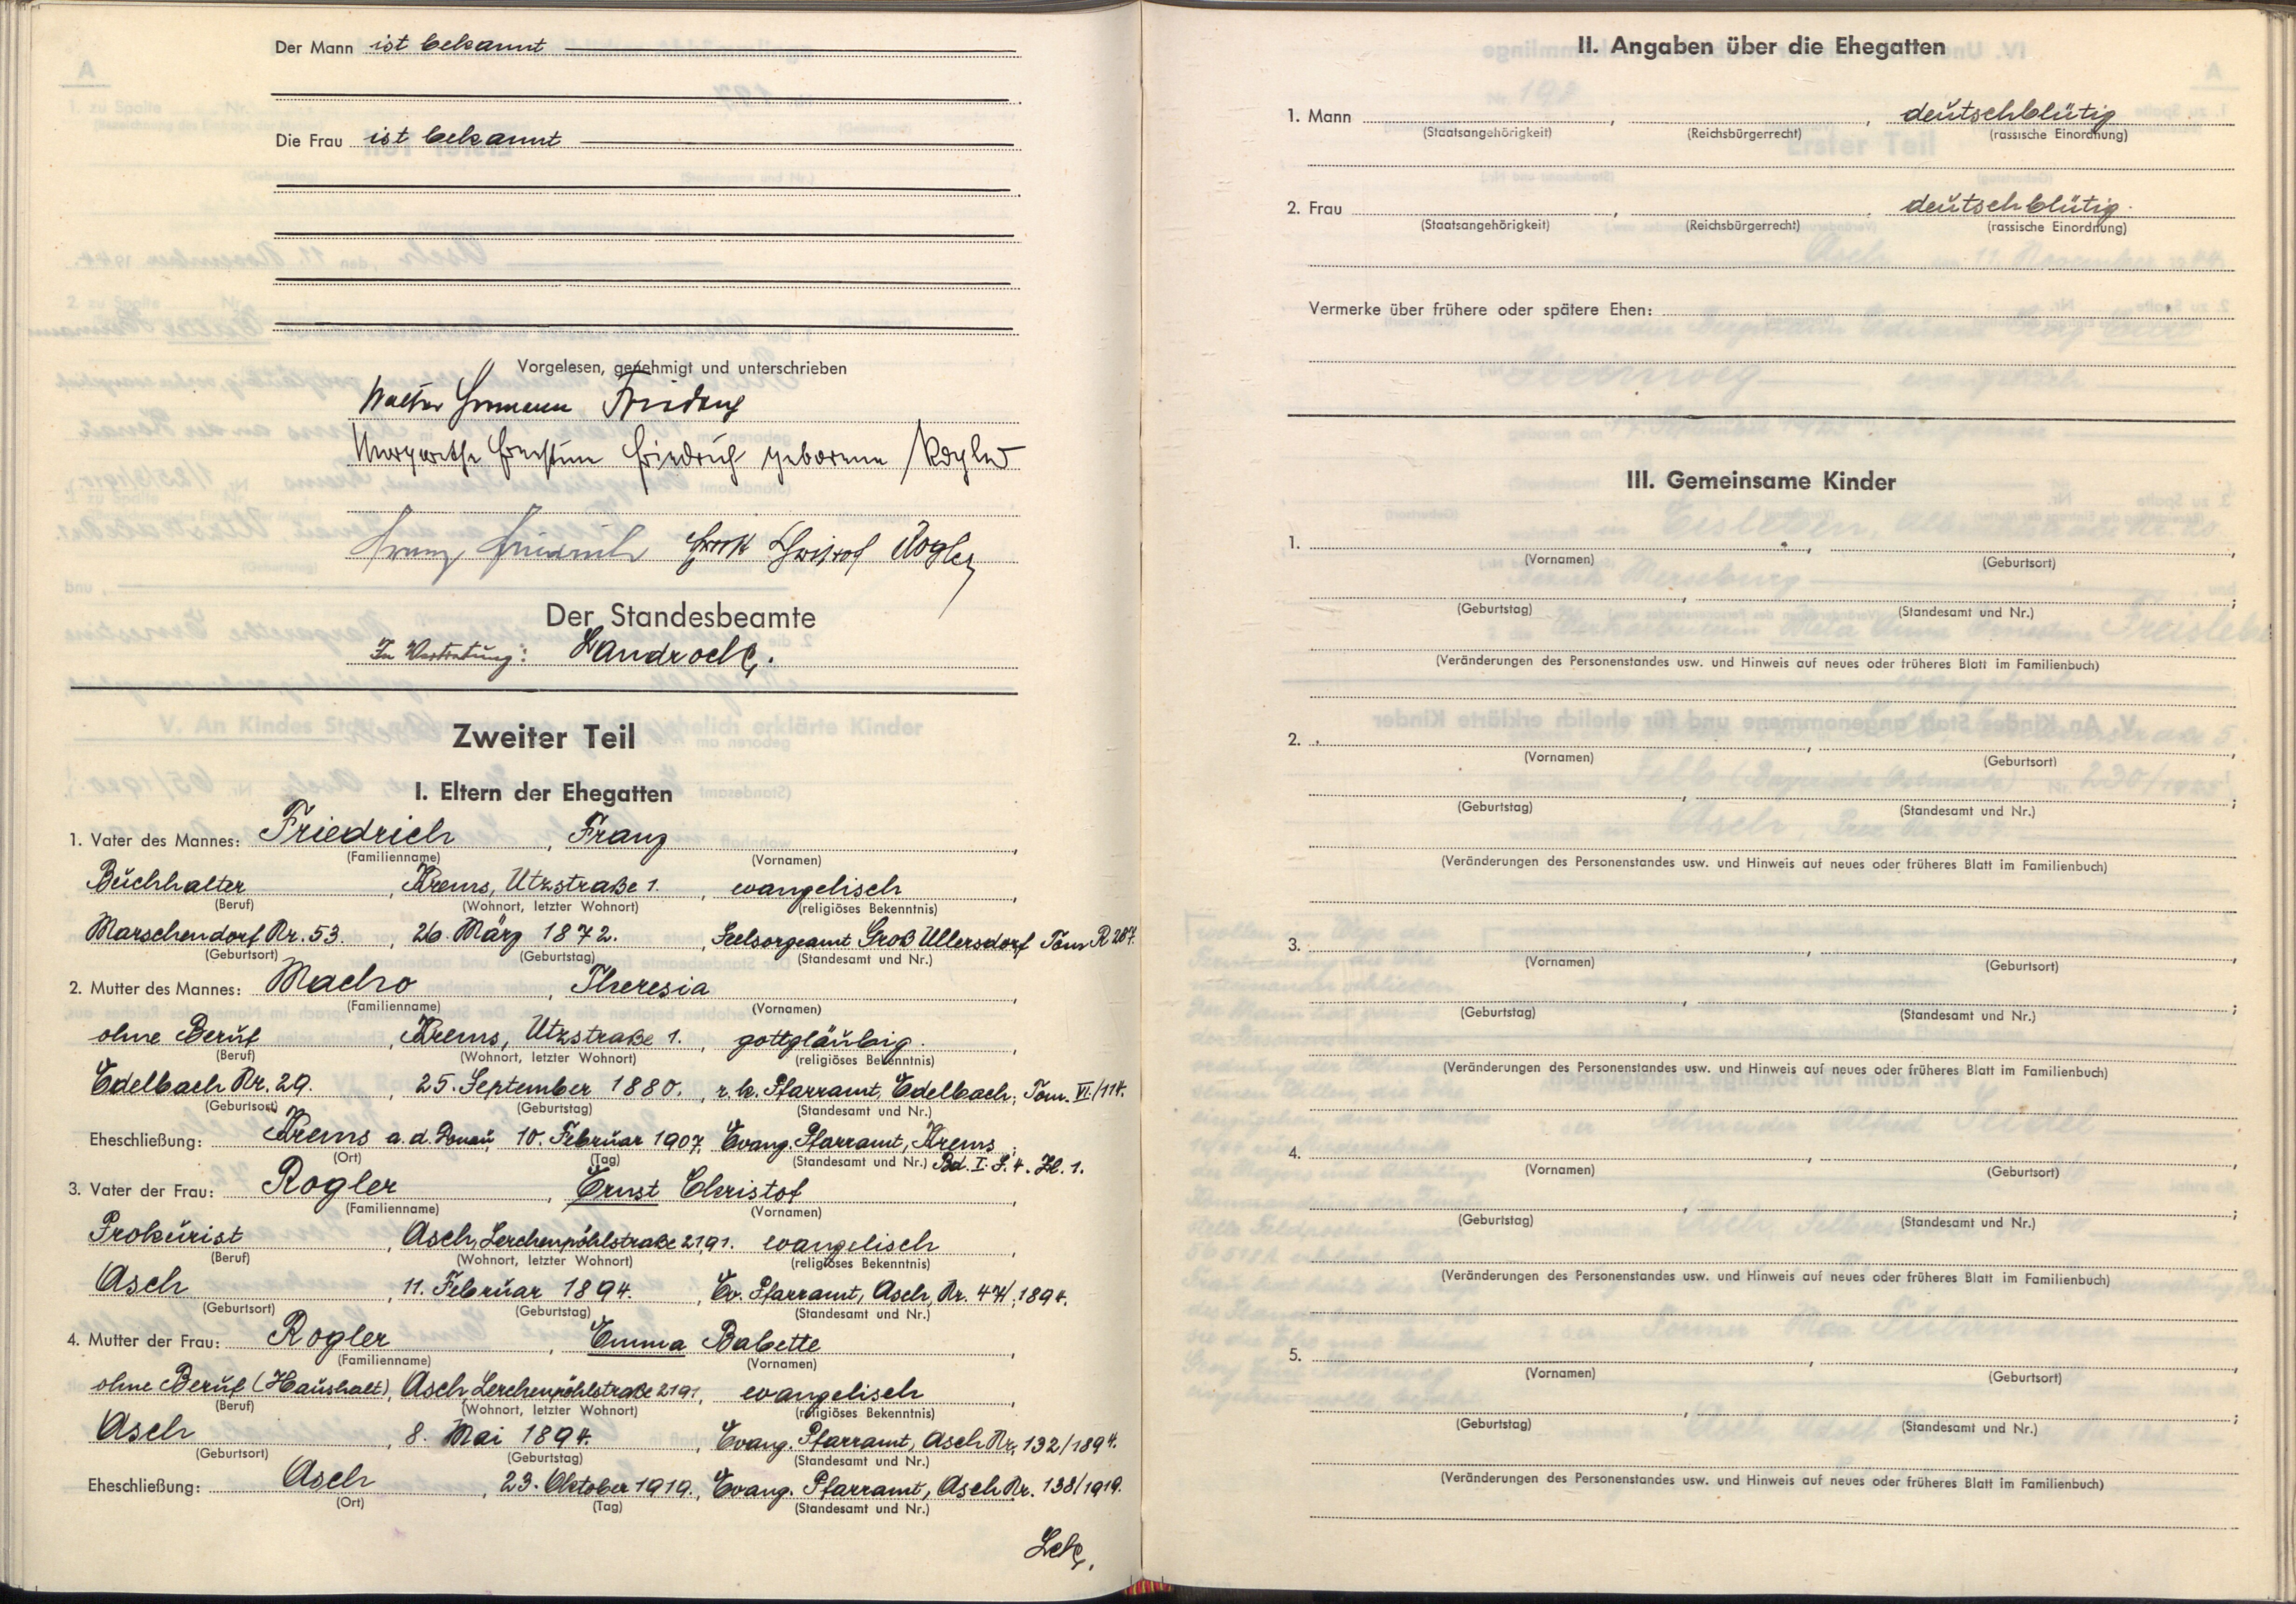 Der Mann ist bekannt
Die Frau ist bekannt
Vorgelesen, genehmigt und unterschrieben
Walter Hermann Friedrich
Margarethe Ernestine Friedrich geborene Rogler
Franz Friedrich Ernst Christof Rogler
Der Standesbeamte
In Vertretung: Landrock.
Zweiter Teil
I. Eltern der Ehegatten
1. Vater des Mannes: Friedrich, Franz,
(Familienname) (Vornamen)
Buchhalter, Krems, Utzstraße 1., evangelisch,
(Beruf) (Wohnort, letzter Wohnort) (religiöses Bekenntnis)
Marschendorf Nr. 53., 26. März 1872., Seelsorgeamt Groß Ullersdorf Tom R 287.
(Geburtsort) (Geburtstag) (Standesamt und Nr.)
2. Mutter des Mannes: Macho, Theresia,
(Familienname) (Vornamen)
ohne Beruf, Krems, Utzstraße 1., gottgläubig.,
(Beruf) (Wohnort, letzter Wohnort) (religiöses Bekenntnis)
Edelbach Nr. 29., 25. September 1880., r. k. Pfarramt, Edelbach; Tom. VI./114.
(Geburtsort) (Geburtstag) (Standesamt und Nr.)
Eheschließung: Krems a. d. Donau, 10. Februar 1907, Evang. Pfarramt, Krems;
(Ort) (Tag) (Standesamt und Nr.) Bd. I. S. 4. Zl. 1.
3. Vater der Frau: Rogler, Ernst Christof,
(Familienname) (Vornamen)
Prokurist, Asch, Lerchenpöhlstraße 2191. evangelisch,
(Beruf) (Wohnort, letzter Wohnort) (religiöses Bekenntnis)
Asch, 11. Februar 1894., Ev. Pfarramt, Asch, Nr. 47/1894.
(Geburtsort) (Geburtstag) (Standesamt und Nr.)
4. Mutter der Frau: Rogler, Emma Babette,
(Familienname) (Vornamen)
ohne Beruf (Haushalt), Asch, Lerchenpöhlstraße 2191, evangelisch,
(Beruf) (Wohnort, letzter Wohnort) (religiöses Bekenntnis)
Asch, 8. Mai 1894., Evang. Pfarramt, Asch Nr. 132/1894.
(Geburtsort) (Geburtstag) (Standesamt und Nr.)
Eheschließung: Asch, 23. Oktober 1919., Evang. Pfarramt, Asch Nr. 138/1919.
(Ort) (Tag) (Standesamt und Nr.)
II. Angaben über die Ehegatten
1. Mann , , deutschblütig
(Staatsangehörigkeit) (Reichsbürgerrecht) (rassische Einordnung)
2. Frau , , deutschblütig.
(Staatsangehörigkeit) (Reichsbürgerrecht) (rassische Einordnung)
Vermerke über frühere oder spätere Ehen:
III. Gemeinsame Kinder
1. , ,
(Vornamen) (Geburtsort)
, ;
(Geburtstag) (Standesamt und Nr.)
(Veränderungen des Personenstandes usw. und Hinweis auf neues oder früheres Blatt im Familienbuch)
2. , ,
(Vornamen) (Geburtsort)
, ;
(Geburtstag) (Standesamt und Nr.)
(Veränderungen des Personenstandes usw. und Hinweis auf neues oder früheres Blatt im Familienbuch)
3. , ,
(Vornamen) (Geburtsort)
, ;
(Geburtstag) (Standesamt und Nr.)
(Veränderungen des Personenstandes usw. und Hinweis auf neues oder früheres Blatt im Familienbuch)
4. , ,
(Vornamen) (Geburtsort)
, ;
(Geburtstag) (Standesamt und Nr.)
(Veränderungen des Personenstandes usw. und Hinweis auf neues oder früheres Blatt im Familienbuch)
5. , ,
(Vornamen) (Geburtsort)
, ;
(Geburtstag) (Standesamt und Nr.)
(Veränderungen des Personenstandes usw. und Hinweis auf neues oder früheres Blatt im Familienbuch)